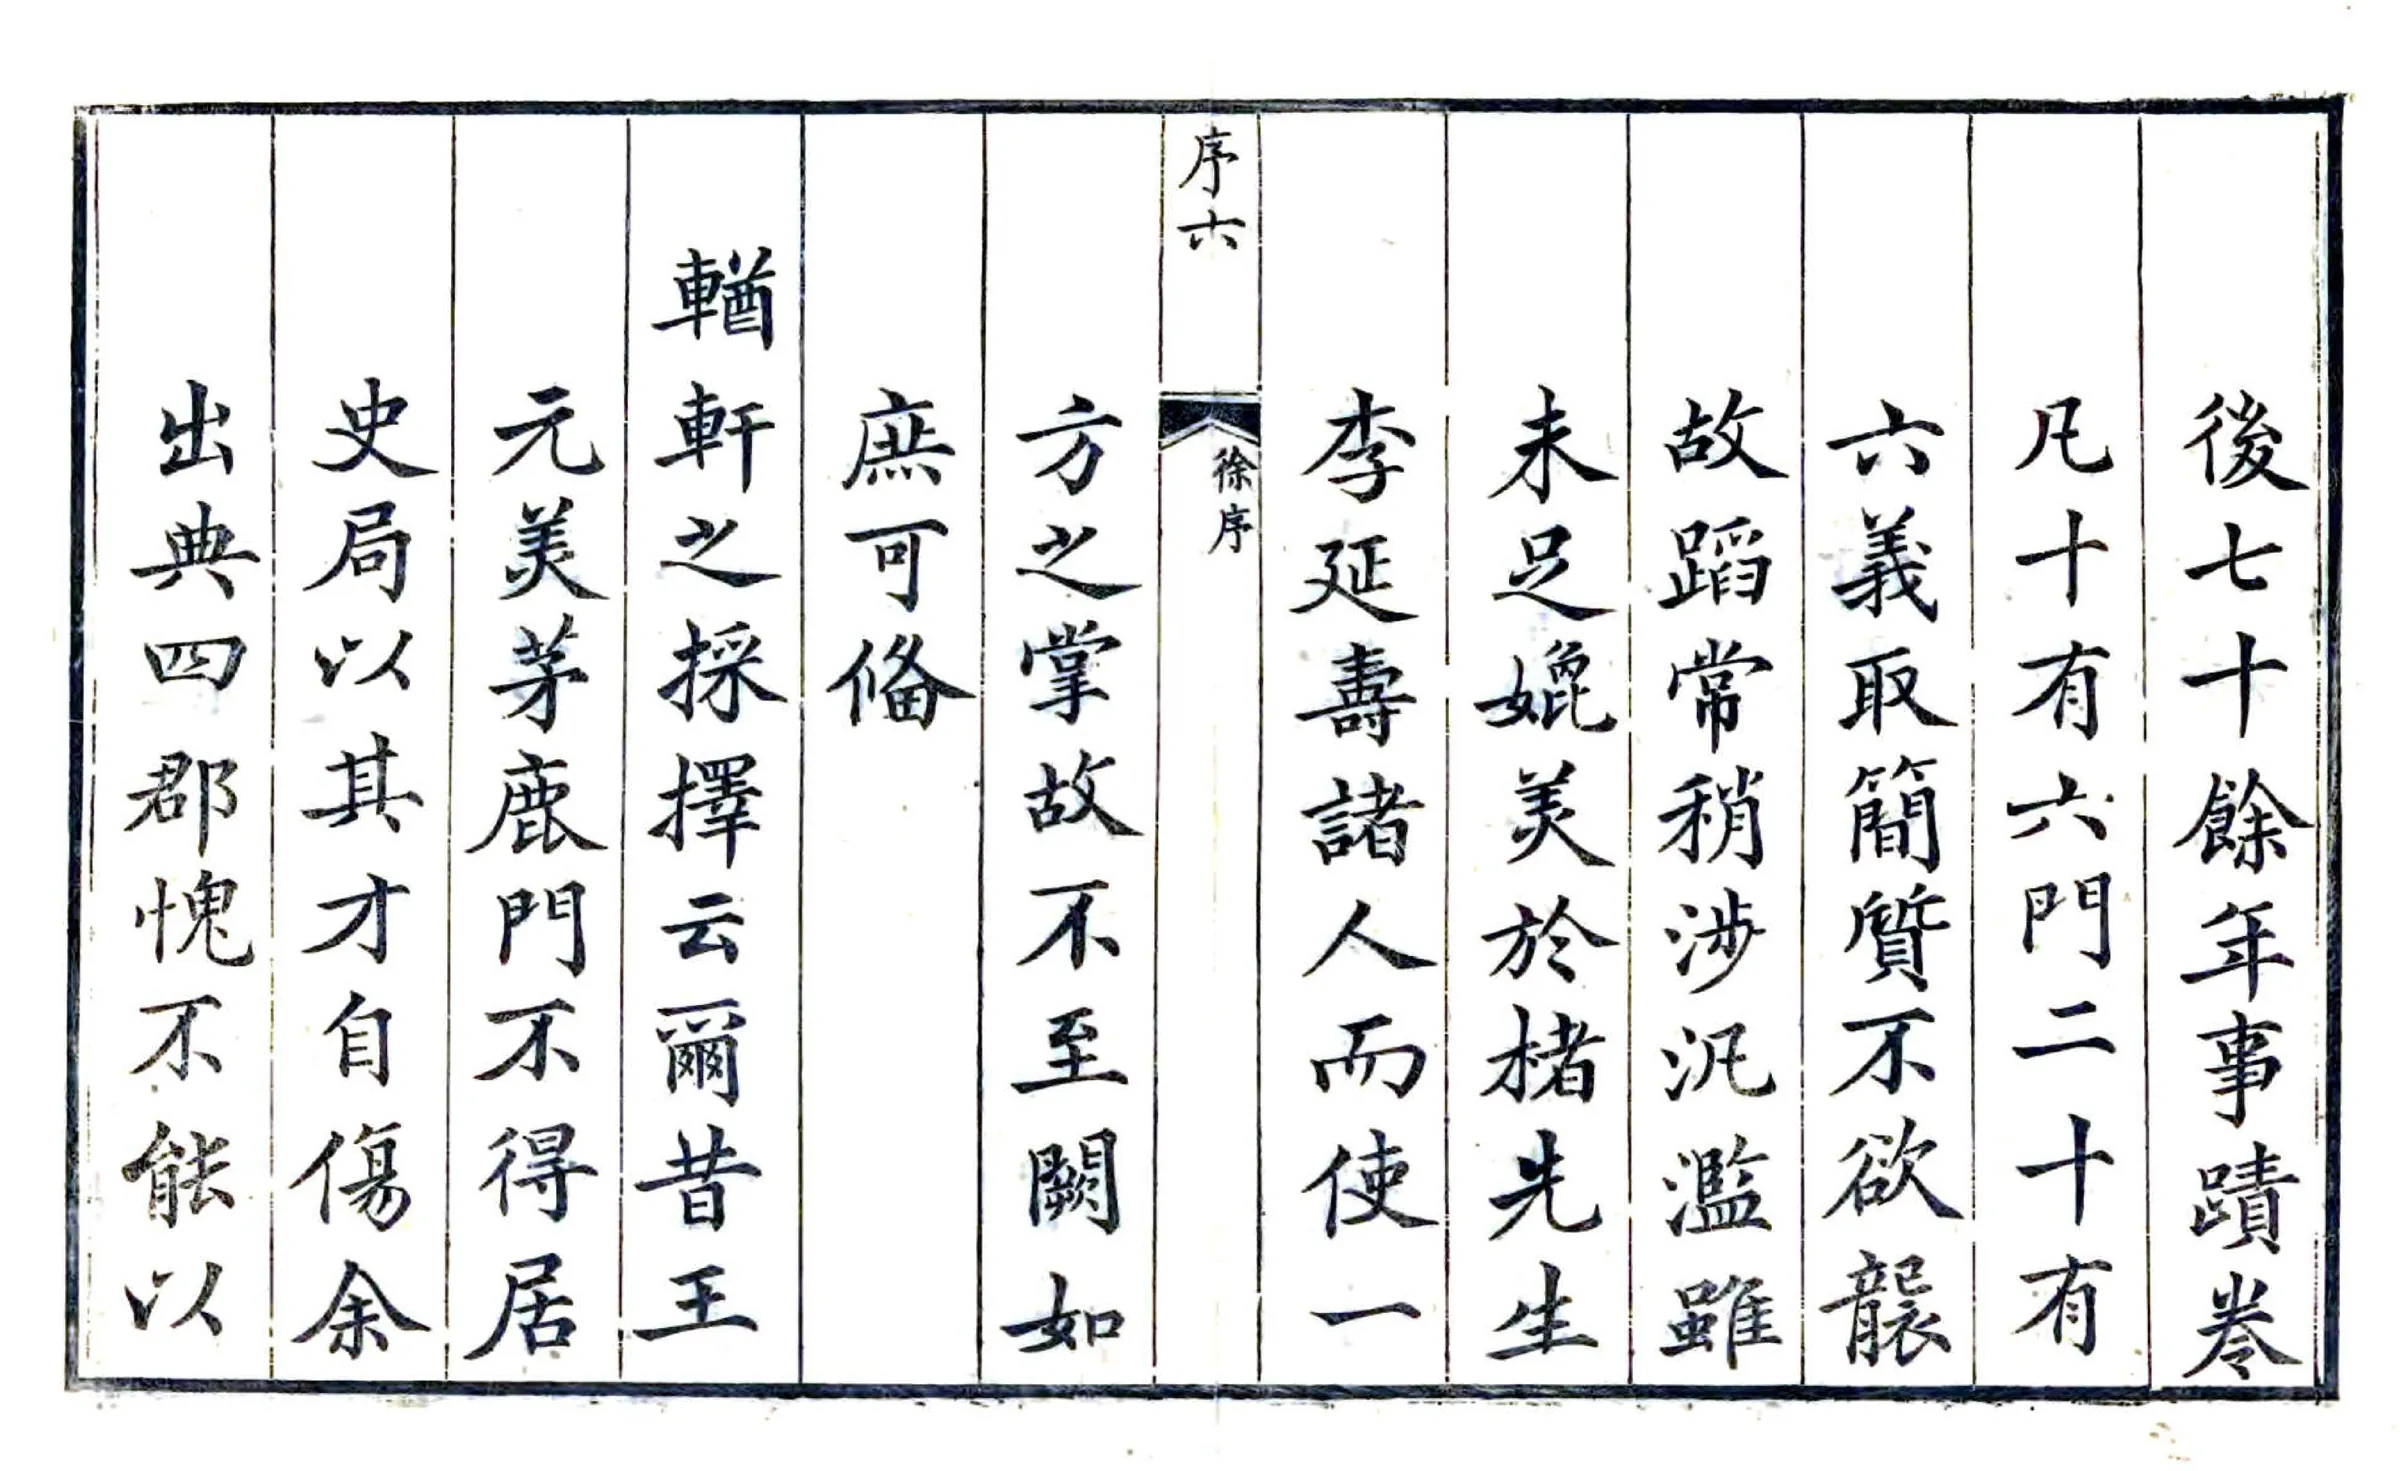 後七十餘年事蹟卷
凡十有六門二十有
六義取簡質不欲襲
故蹈常稍涉汎濫雖
未足媲美於楮先生
李延壽諸人而使一
序六
徐序
方之掌故不至闕如
庶可俻
輶軒之採擇云爾昔王
元美茅鹿門不得居
史局以其才自傷余
出典四郡愧不能以